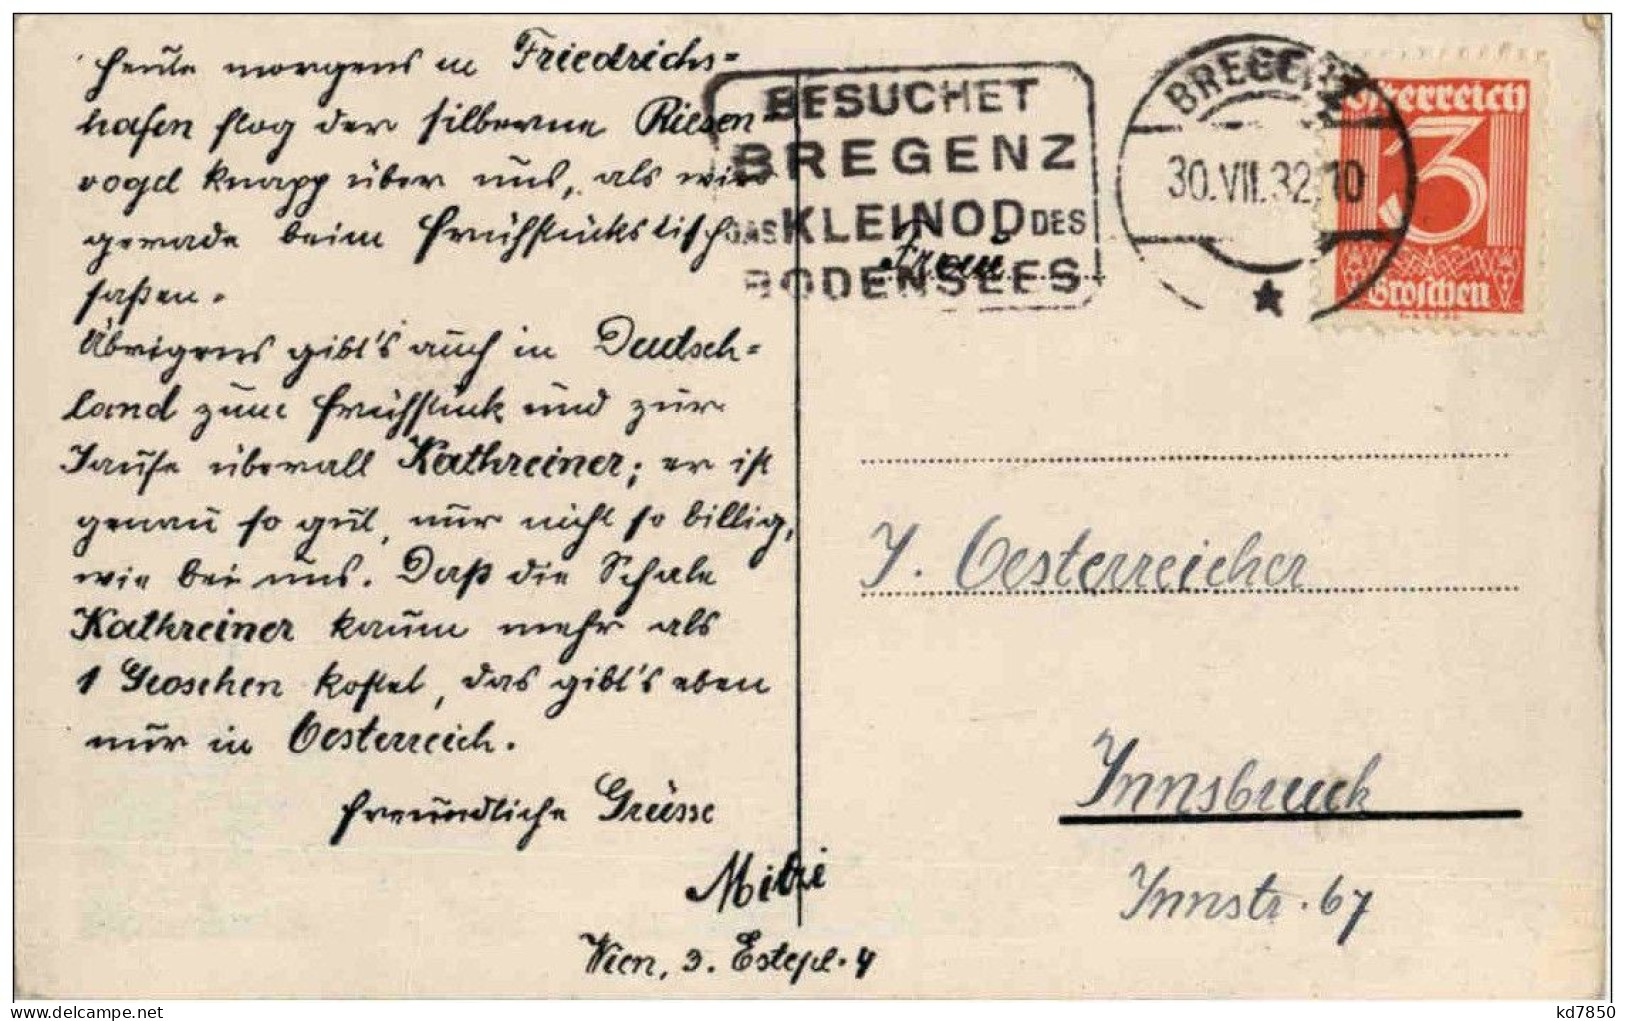 Heute morgens in Friedrichs=
hafen flog der silberne Riesen
vogel knapp über uns, als wir
gerade beim Frühstückstisch
saßen.
Übrigens gibt's auch in Deutsch=
land zum Frühstück und zur
Jause überall Kathreiner; er ist
genau so gut, nur nicht so billig,
wie bei uns. Daß die Schale
Kathreiner kaum mehr als
1 Groschen kostet, das gibt's eben
nur in Oesterreich.
Freundliche Grüsse
Mitzi
Wien, 3. Estepl. 4
BESUCHET
BREGENZ
DAS KLEINOD DES
BODENSEES
BREGENZ
30.VII.32.10
Österreich
3
Groschen
Frau
J. Oesterreicher
Innsbruck
Innstr. 67
kd7850
www.delcampe.net